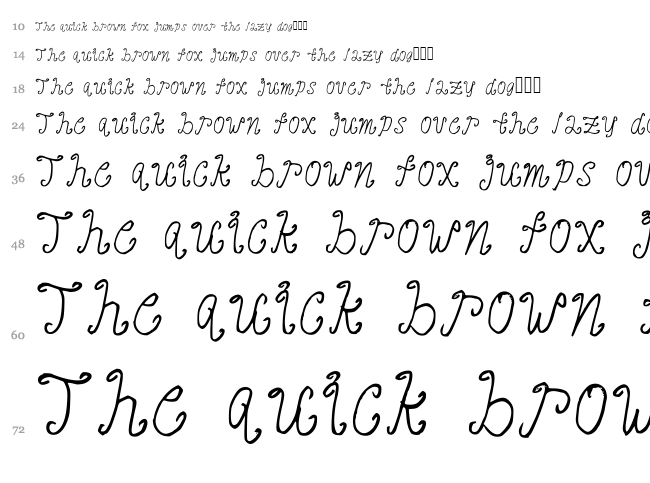 10 The quick brown fox jumps over the lazy dog
14 The quick brown fox jumps over the lazy dog
18 The quick brown fox jumps over the lazy dog
24 The quick brown fox jumps over the lazy do
36 The quick brown fox jumps ov
48 The quick brown fox j
60 The quick brown
72 The quick brow